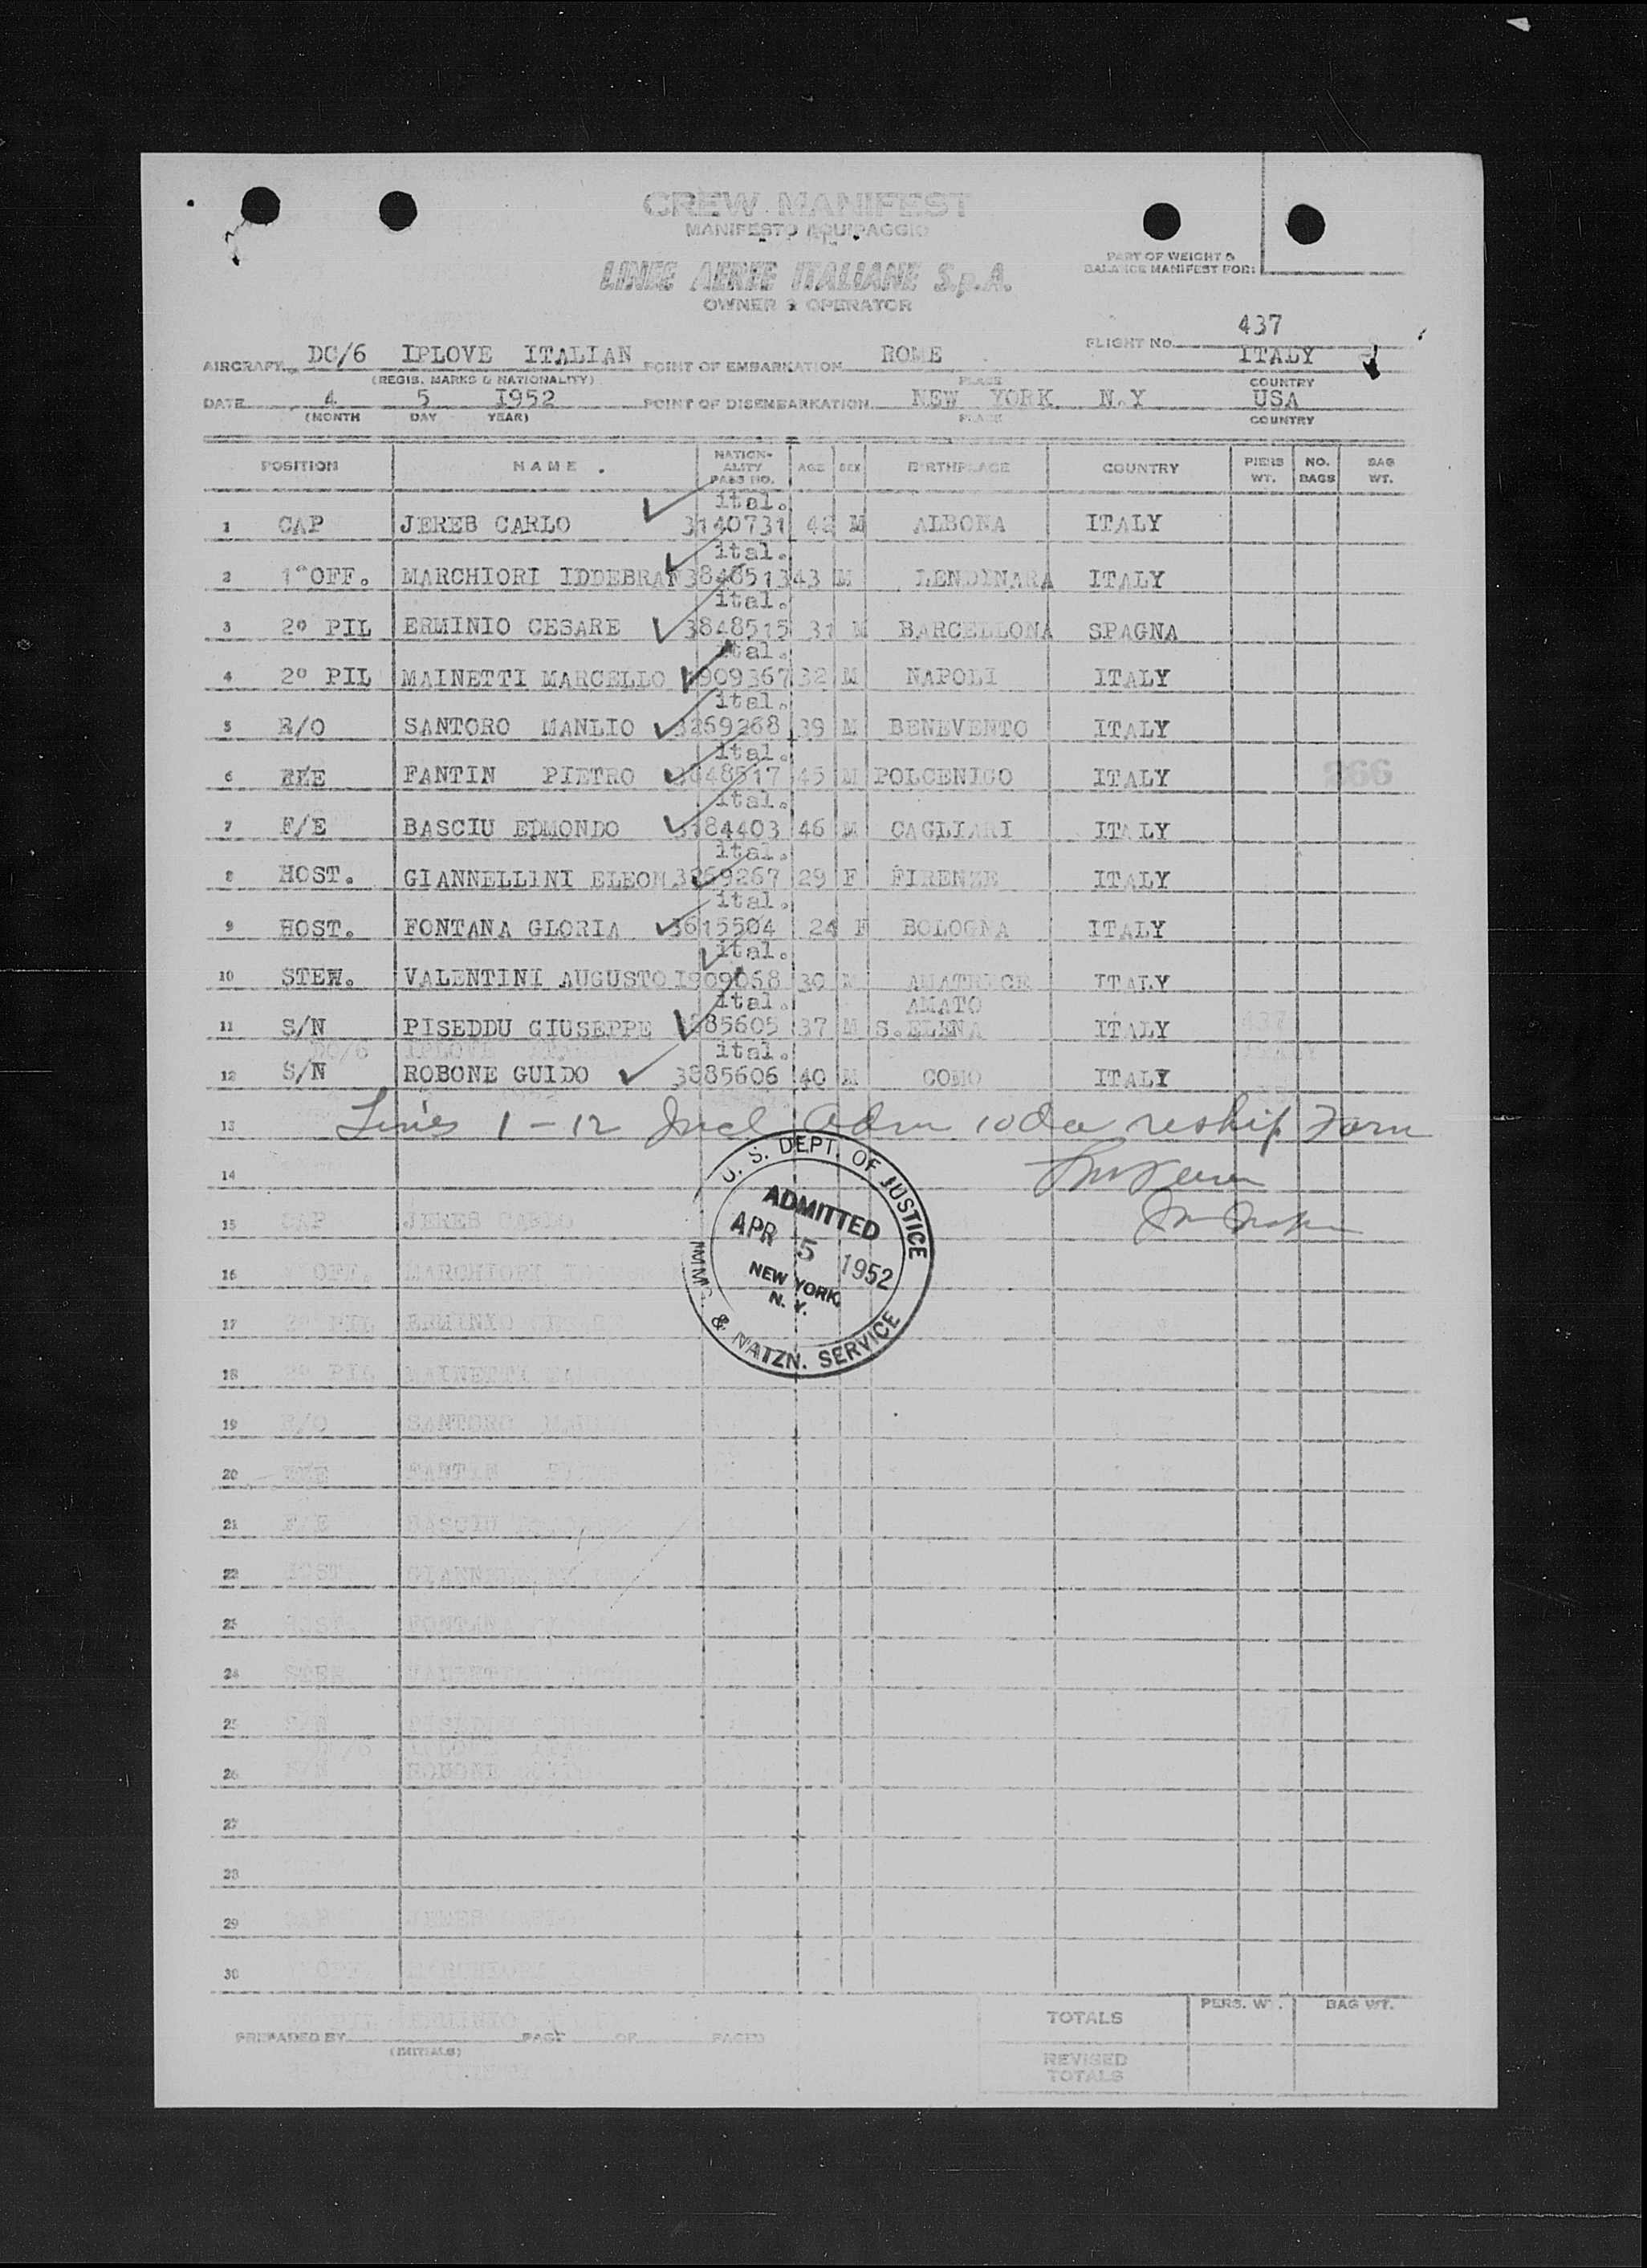 CREW MANIFEST
MANIFESTO EQUIPAGGIO
PART OF WEIGHT &
BALANCE MANIFEST FOR:
LINEE AEREE ITALIANE S.p.A.
OWNER & OPERATOR
FLIGHT No. 437
AIRCRAFT DC/6 IPLOVE ITALIAN POINT OF EMBARKATION ROME ITALY
(REGIS. MARKS & NATIONALITY) PLACE COUNTRY
DATE 4 5 I952 POINT OF DISEMBARKATION NEW YORK N.Y USA
(MONTH DAY YEAR) PLACE COUNTRY
POSITION NAME NATION-ALITY PASS NO. AGE SEX BIRTHPLACE COUNTRY PIERS WT. NO. BAGS BAG WT.
ital.
1 CAP JERES CARLO 3140731 42 M ALBONA ITALY
ital.
2 1° OFF. MARCHIORI IDDEBRAN 3848513 43 M LENDINARA ITALY
ital.
3 2° PIL ERMINIO CESARE 3848515 31 M BARCELLONA SPAGNA
ital.
4 2° PIL MAINETTI MARCELLO 909367 32 M NAPOLI ITALY
ital.
5 R/O SANTORO MANLIO 3269268 39 M BENEVENTO ITALY
ital.
6 FANTIN PIETRO 3848517 45 M POLCENIGO ITALY 266
ital.
7 F/E BASCIU EDMONDO 84403 46 M CAGLIARI ITALY
ital.
8 HOST. GIANNELLINI ELEON 3269267 29 F FIRENZE ITALY
ital.
9 HOST. FONTANA GLORIA 3615504 24 F BOLOGNA ITALY
ital.
10 STEW. VALENTINI AUGUSTO I909068 30 M AMATRICE ITALY
ital. AMATO
11 S/N PISEDDU GIUSEPPE 85605 37 M S.ELENA ITALY
ital.
12 S/N ROBONE GUIDO 3885606 40 M COMO ITALY
13 Lines 1-12 Incl Adm reship
14
15
16
17
18
19
20
21
22
23
24
25
26
27
28
29
30
U. S. DEPT. OF JUSTICE
ADMITTED
APR 5 1952
NEW YORK,
N. Y.
IMMG. & NATZN. SERVICE
TOTALS PERS. WT. BAG WT.
PREPARED BY PAGE OF PAGES
(INITIALS)
REVISED
TOTALS